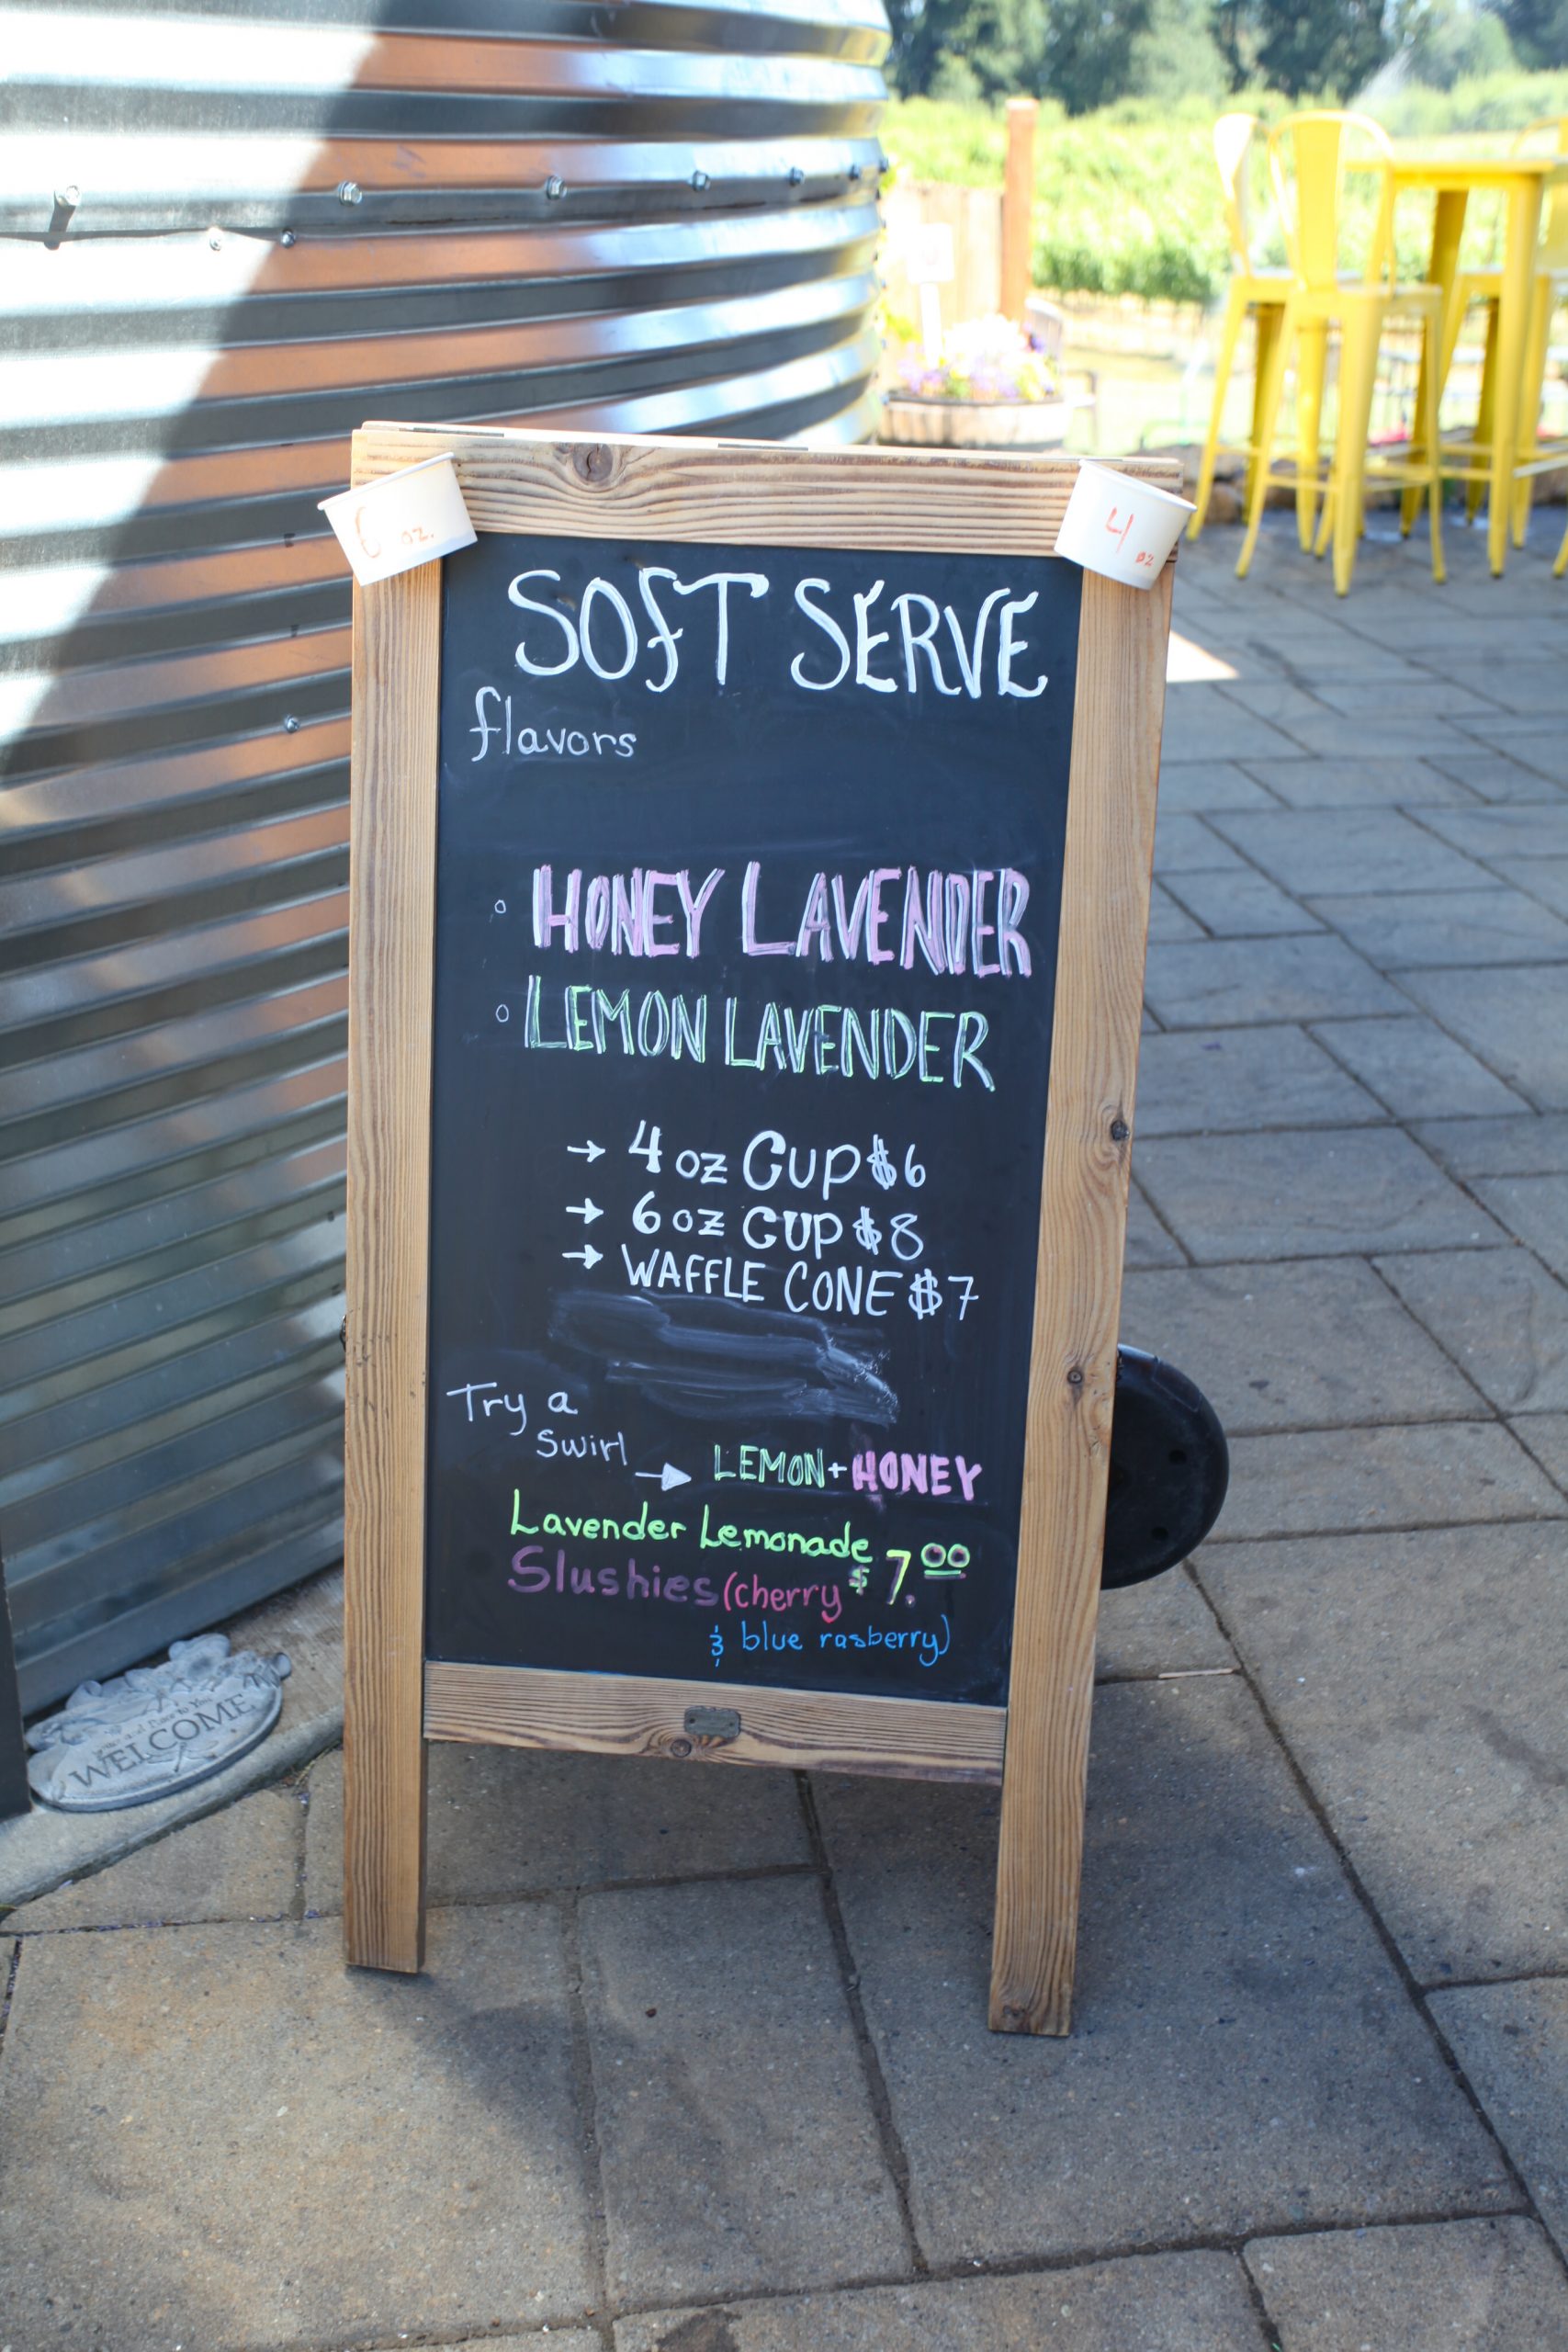 6 oz.
4 oz
SOFT SERVE
flavors
◦ HONEY LAVENDER
◦ LEMON LAVENDER
→ 4 oz CUP $6
→ 6 oz CUP $8
→ WAFFLE CONE $7
Try a
swirl → LEMON + HONEY
Lavender Lemonade
Slushies (cherry $7.00
& blue rasberry)
WELCOME